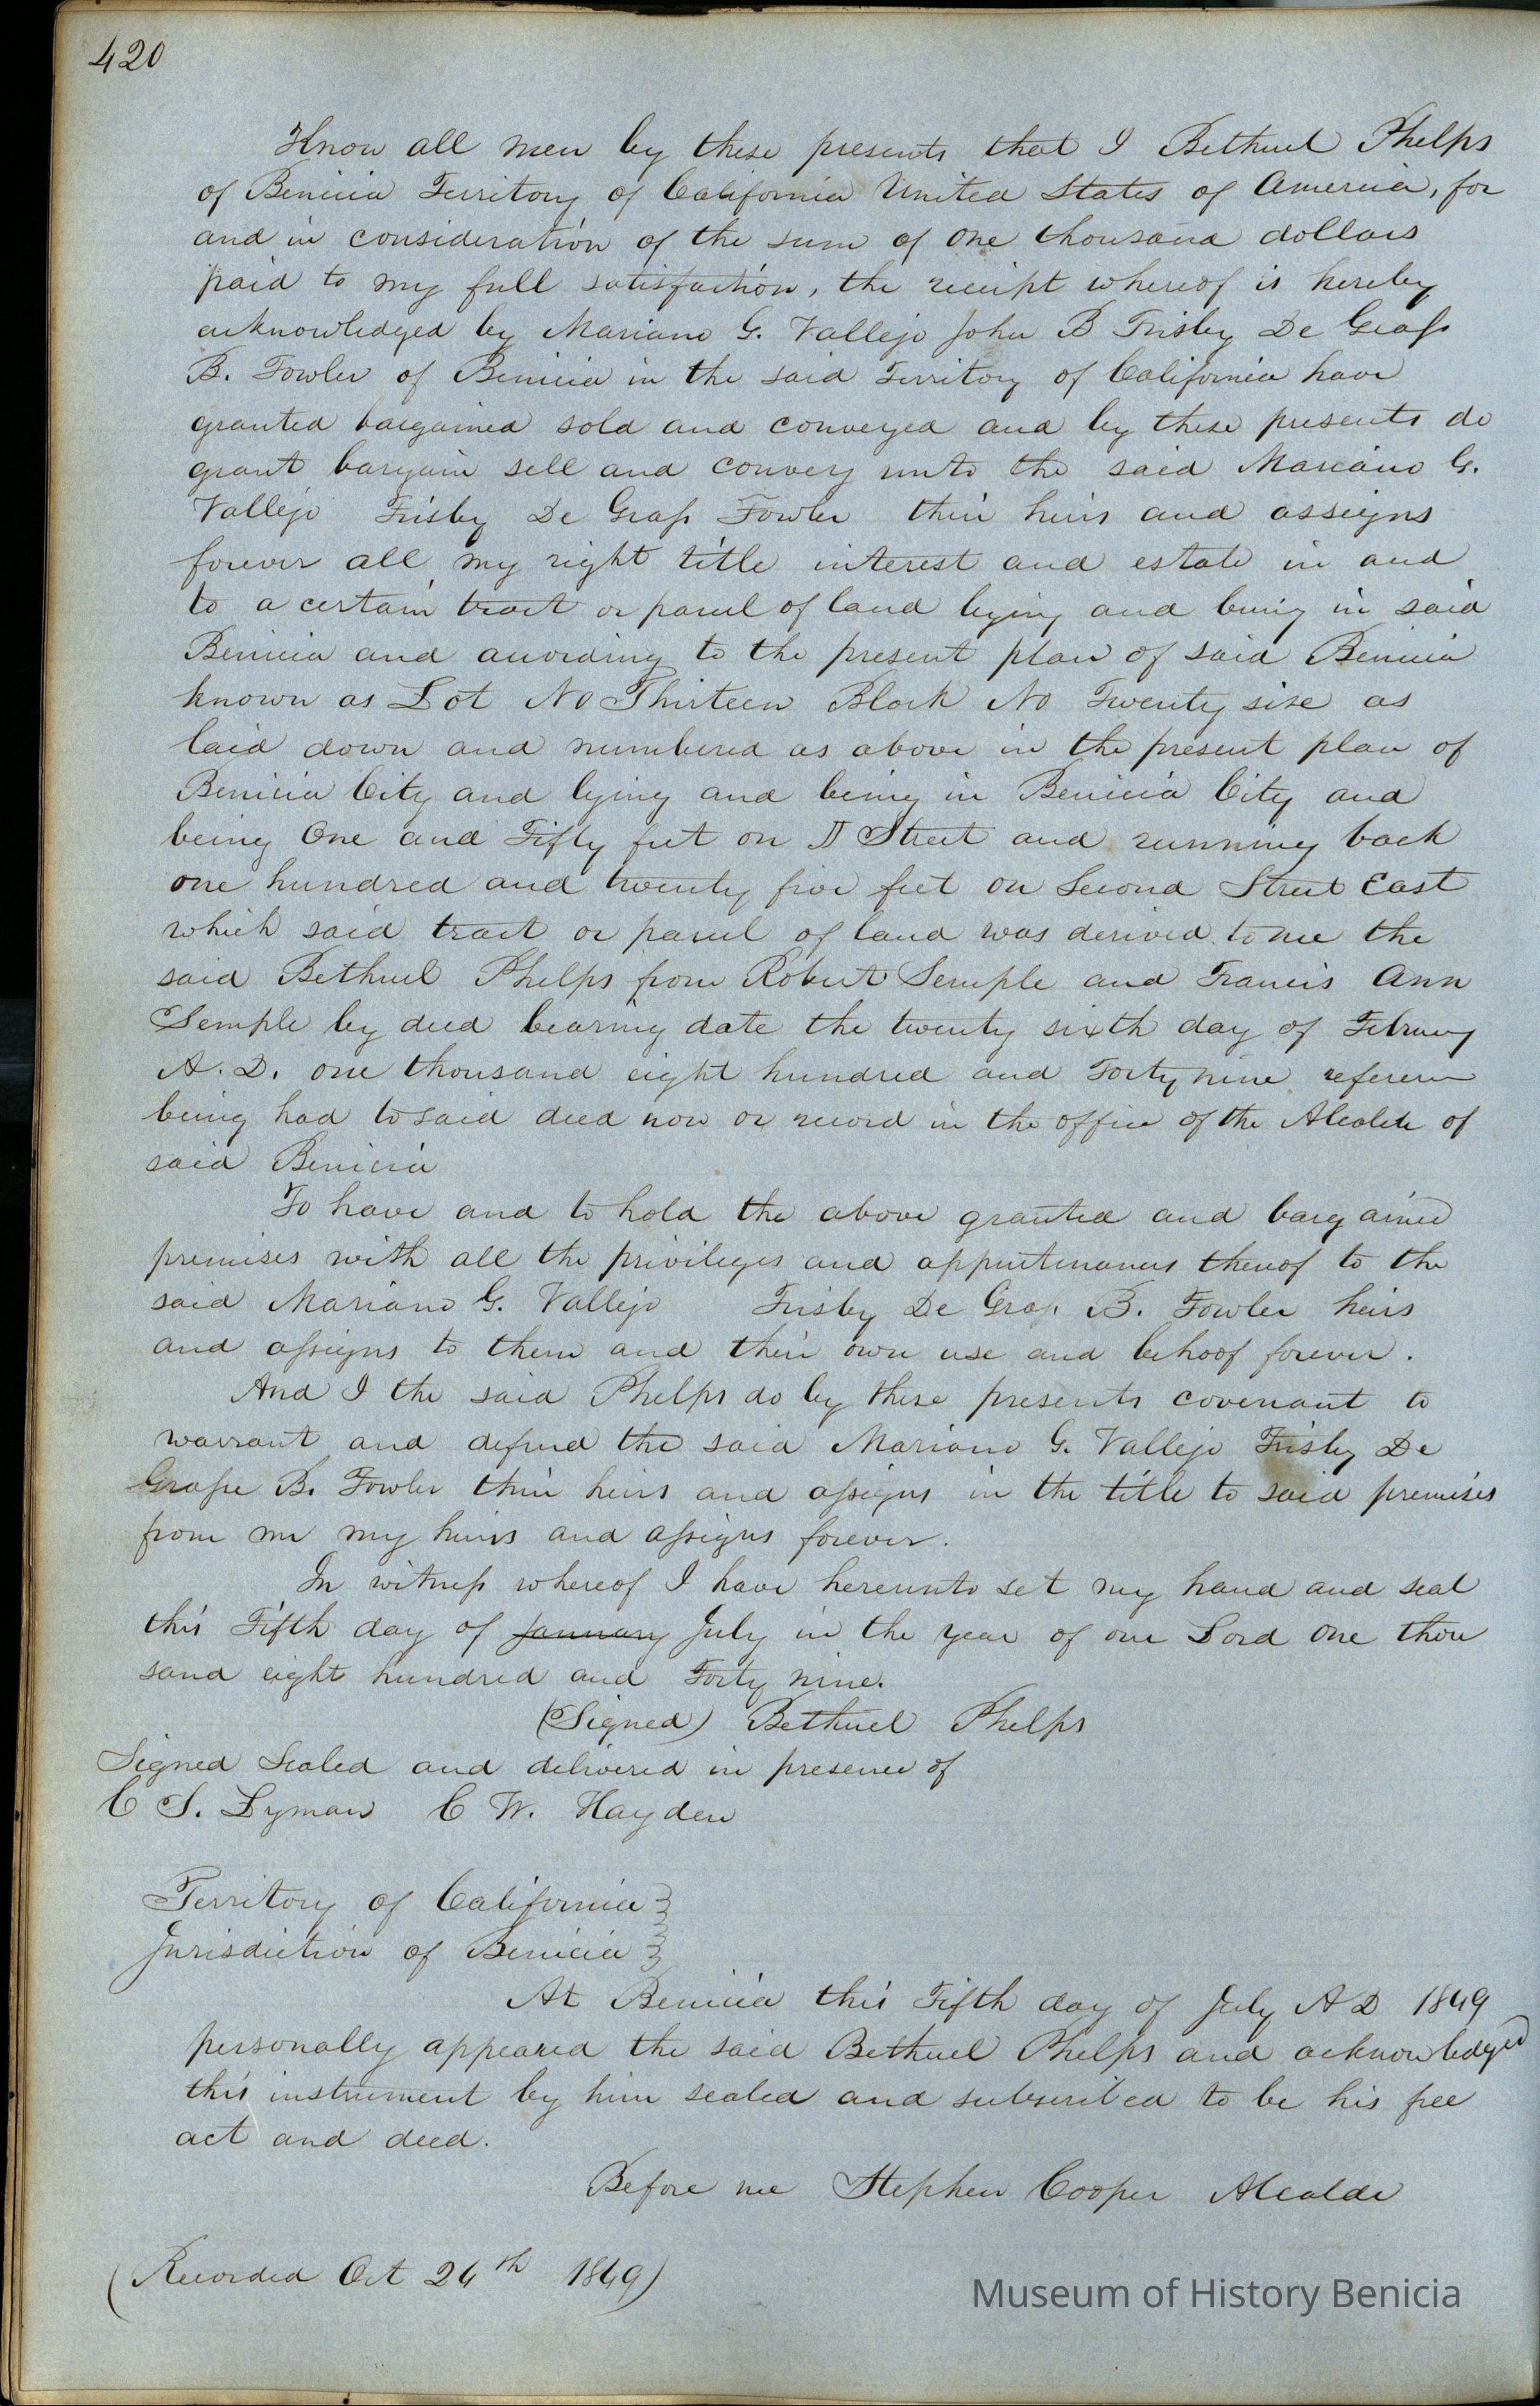 420
Know all men by these presents that I Bethuel Phelps
of Benicia Territory of California United States of America, for
and in consideration of the sum of One thousand dollars
paid to my full satisfaction, the receipt whereof is hereby
acknowledged by Mariano G. Vallejo John B Frisby De Grass
B. Fowler of Benicia in the said Territory of California have
granted bargained sold and conveyed and by these presents do
grant bargain sell and convey unto the said Mariano G.
Vallejo Frisby De Grass Fowler their heirs and assigns
forever all my right title interest and estate in and
to a certain tract or parcel of land lying and being in said
Benicia and according to the present plan of said Benicia
known as Lot No Thirteen Block No Twenty six as
laid down and numbered as above in the present plan of
Benicia City and lying and being in Benicia City and
being One and Fifty feet on D Street and running back
one hundred and twenty five feet on Second Street East
which said tract or parcel of land was derived to me the
said Bethuel Phelps from Robert Semple and Francis Ann
Semple by deed bearing date the twenty sixth day of February
A. D. one thousand eight hundred and Forty nine reference
being had to said deed now or record in the office of the Alcalde of
said Benicia
To have and to hold the above granted and bargained
premises with all the privileges and appurtenances thereof to the
said Mariano G. Vallejo Frisby De Grass B. Fowler heirs
and assigns to them and their own use and behoof forever.
And I the said Phelps do by these presents covenant to
warrant and defend the said Mariano G. Vallejo Frisby De
Grasse B. Fowler their heirs and assigns in the title to said premises
from me my heirs and assigns forever.
In witness whereof I have hereunto set my hand and seal
this Fifth day of January July in the year of our Lord One thou
sand eight hundred and Forty nine.
(Signed) Bethuel Phelps
Signed Sealed and delivered in presence of
C S. Lyman C W. Hayden
Territory of California }
Jurisdiction of Benicia }
At Benicia this Fifth day of July A D 1849
personally appeared the said Bethuel Phelps and acknowledged
this instrument by him sealed and subscribed to be his free
act and deed.
Before me Stephen Cooper Alcalde
(Recorded Oct 24th 1849)
Museum of History Benicia